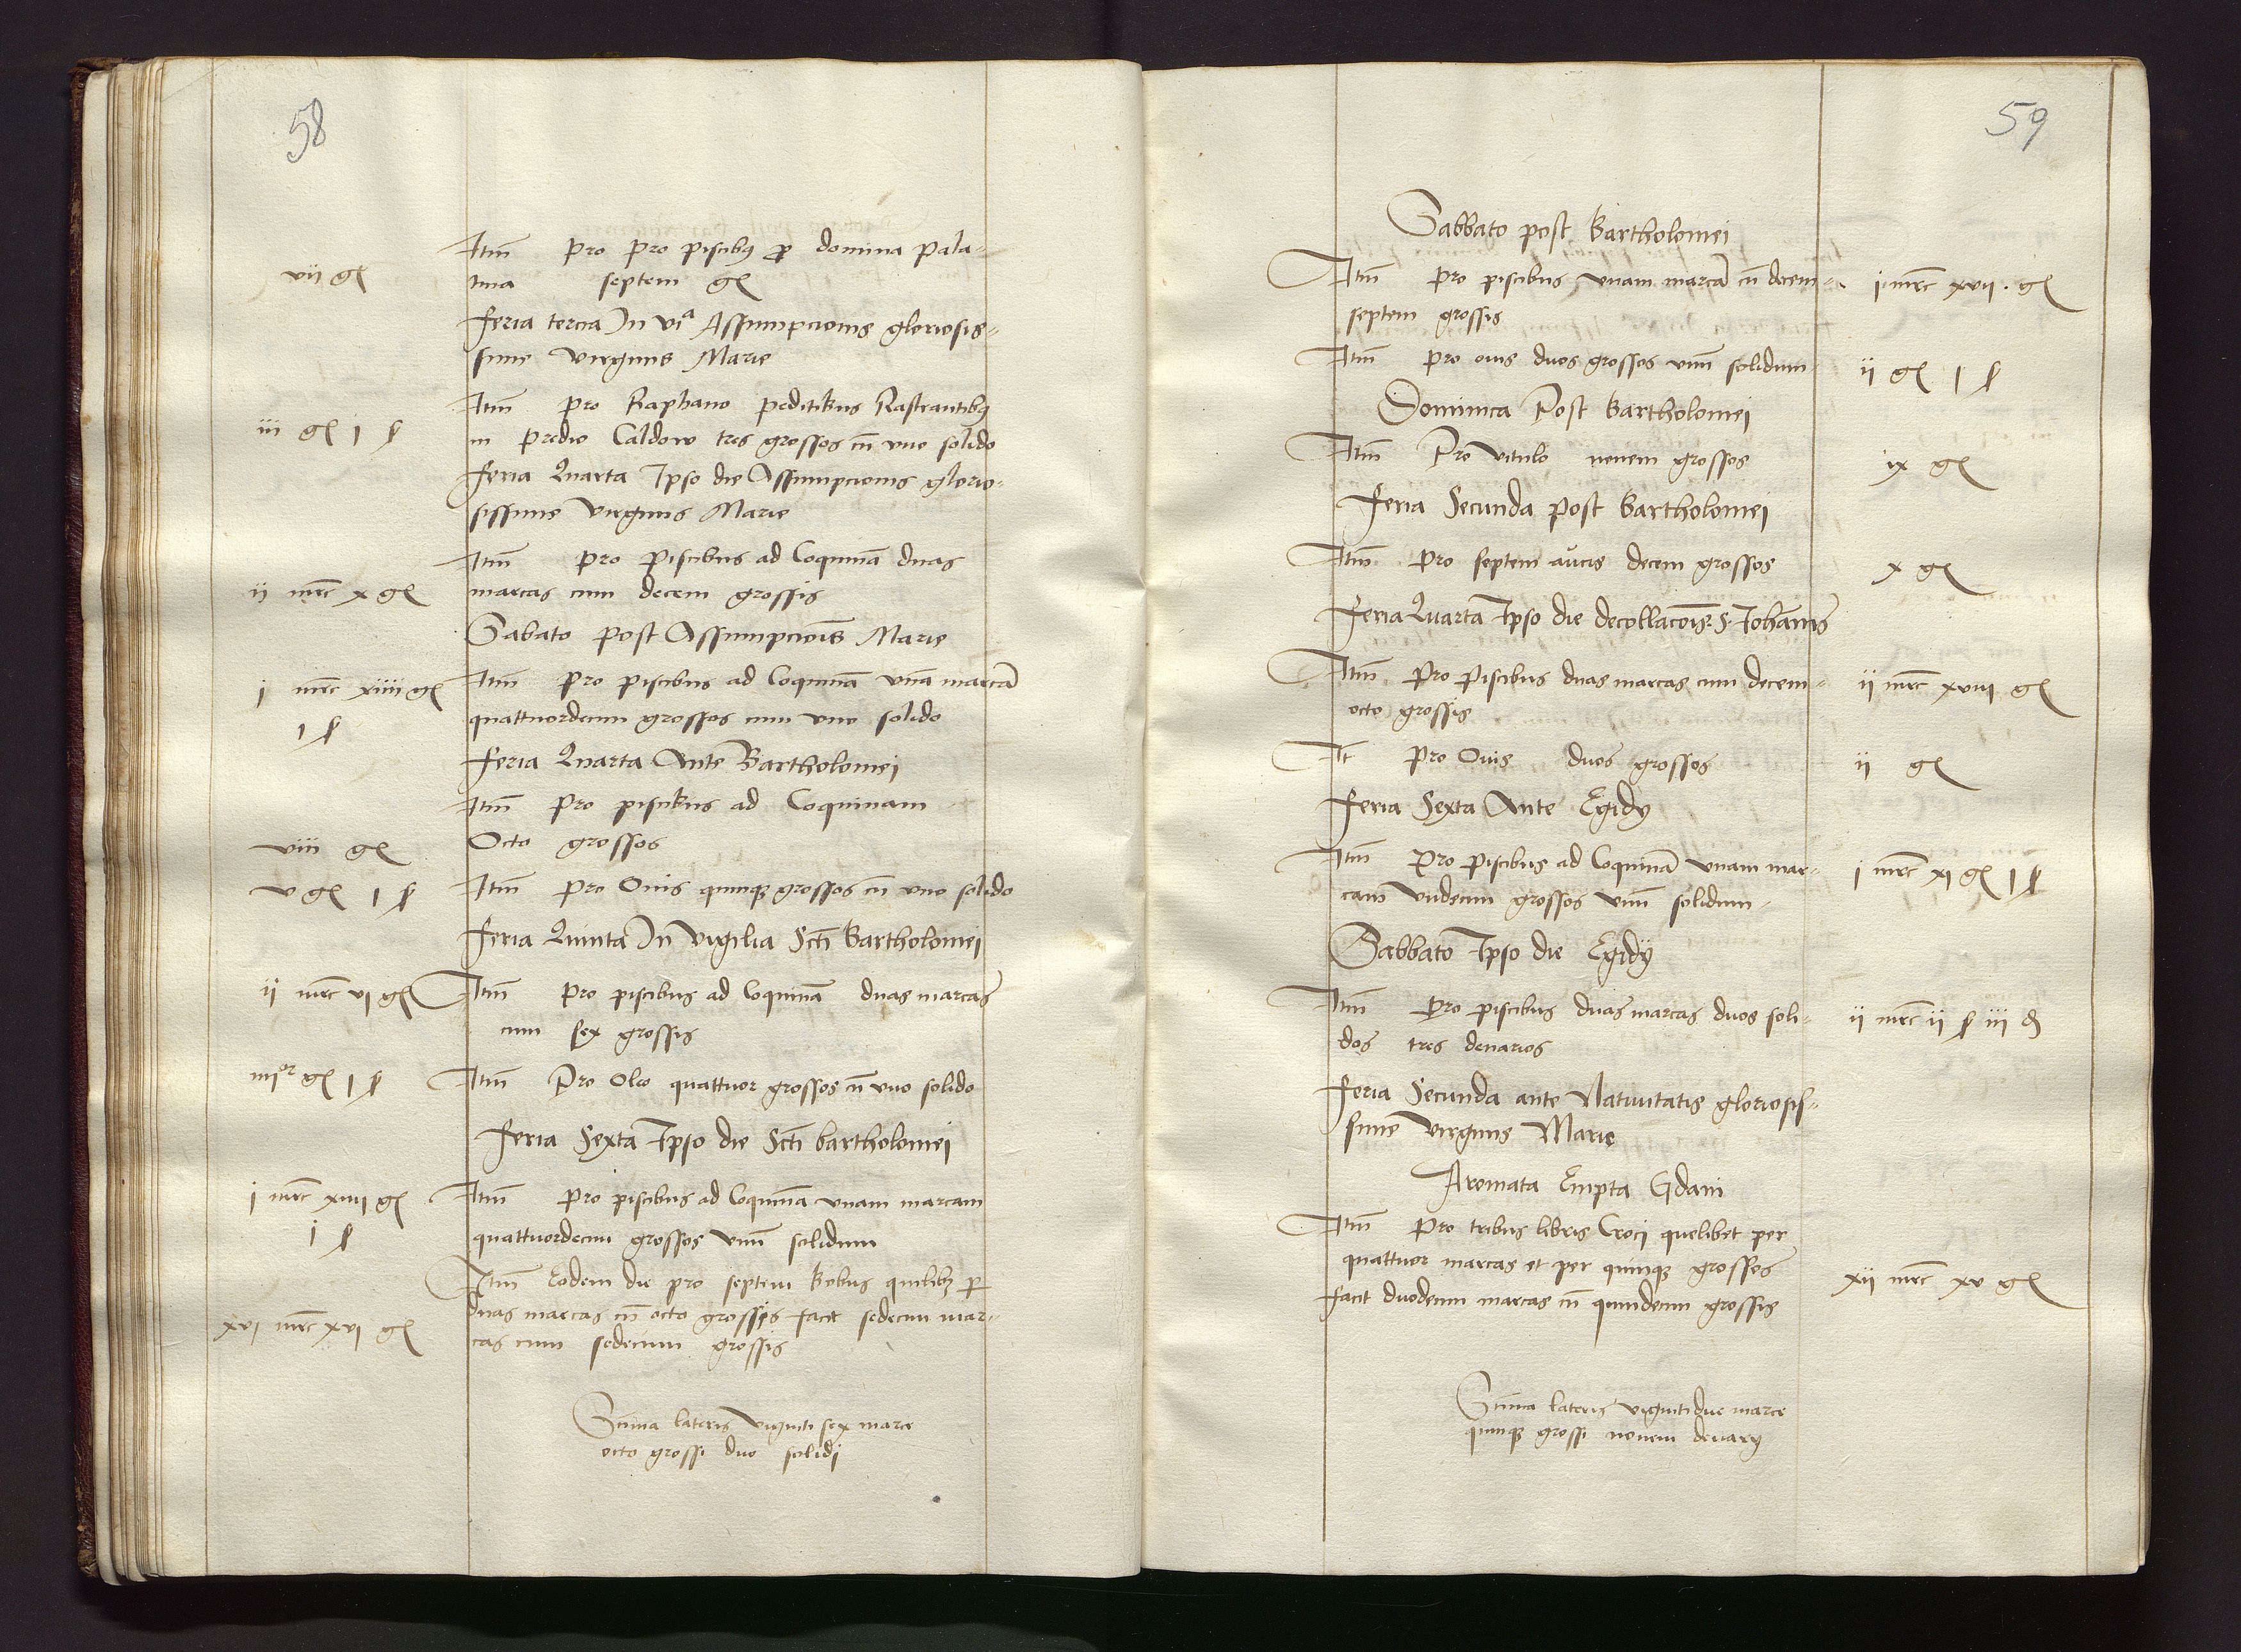 58
Itm̄ pro pro piscibꝰ p̱ domina pala-
vij gſ
tina septem gſ
Feria tercia In vigᵃ Assumpcionis gloriosis-
sime Virginis Marie
Itm̄ pro Raphano peditibus Rastrantibꝰ
iij gſ j ſ
in predio Caldow tres grossos cū vno solido
Feria Quarta Ipso die Assumpcionis glorio-
sissime Virginis Marie
Itm̄ pro Piscibus ad Coquinā duas
ij mrc x gſ
marcas cum decem grossis
Sabato post Assumpciōis Marie
j mrc xiiij gſ
Itm̄ pro piscibus ad Coquinā vnā marcā
j ſ
quattuordecim grossos cum vno solido
Feria Quarta Ante Bartholomei
Itm̄ pro piscibus ad Coquinam
viij gſ
Octo grossos
v gſ j ſ
Itm̄ pro Ovis quinqꝫ grossos cū vno solido
Feria Quinta In Vigilia Scti Bartholomei
ij mrc vj gſ
Itm̄ pro piscibus ad Coquinā duas marcas
cum sex grossis
iiijᵒʳ gſ j ſ
Itm̄ Pro Oleo quattuor grossos cū vno solido
Feria Sexta Ipso die Scti bartholomei
j mrc xiiij gſ
Itm̄ pro piscibus ad Coquinā vnam marcam
j ſ
quattuordecim grossos vnū solidum
Itm̄ Eodem die pro septem bobus quilibꝫ p̱
duas marcas cū octo grossis facit sedecim mar-
xvj mrc xvj gſ
cas cum sedecim grossis
Sūma lateris viginti sex marce
octo grossi duo solidi
59
Sabbato post Bartholomei
Itm̄ pro piscibus vnam marcā cū decem-
j mrc xvij gſ
septem grossis
Itm̄ pro ovis duos grossos vnū solidum
ij gſ j ſ
Dominica Post Bartholomei
Itm̄ Pro Vitulo novem grossos
ix gſ
Feria Secunda post Bartholomei
Itm̄ pro septem aucis decem grossos
x gſ
Feria Quarta Ipso die decollacōis S. Johānis
Itm̄ Pro Piscibus duas marcas cum decem-
ij mrc xviij gſ
octo grossis
It pro Ovis duos grossos
ij gſ
Feria Sexta Ante Egidy
Itm̄ Pro piscibus ad Coquinā vnam mar-
j mrc xj gſ j ſ
cam vndecim grossos vnū solidum
Sabbato Ipso die Egidÿ
Itm̄ Pro piscibus duas marcas duos soli-
ij mrc ij ſ iij ₰
dos tres denarios
Feria Secunda ante Nativitatis gloriosis-
sime Virginis Marie
Aromata Empta Gdani
Itm̄ Pro tribus libris Croci quelibet per
quattuor marcas et per quinqꝫ grossos
xij mrc xv gſ
facit duodecim marcas cū quindecim grossis
Sūma lateris viginti due marce
quinqꝫ grossi novem denarÿ